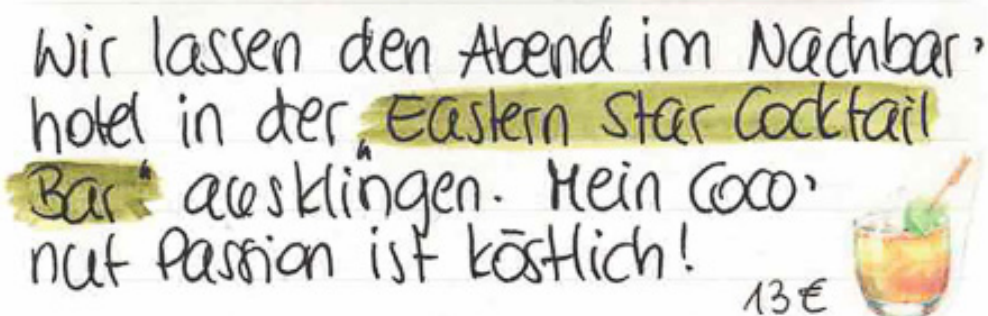 Wir lassen den Abend im Nachbar-
hotel in der „Eastern Star Cocktail
Bar“ ausklingen. Mein Coco-
nut Passion ist köstlich!
13€